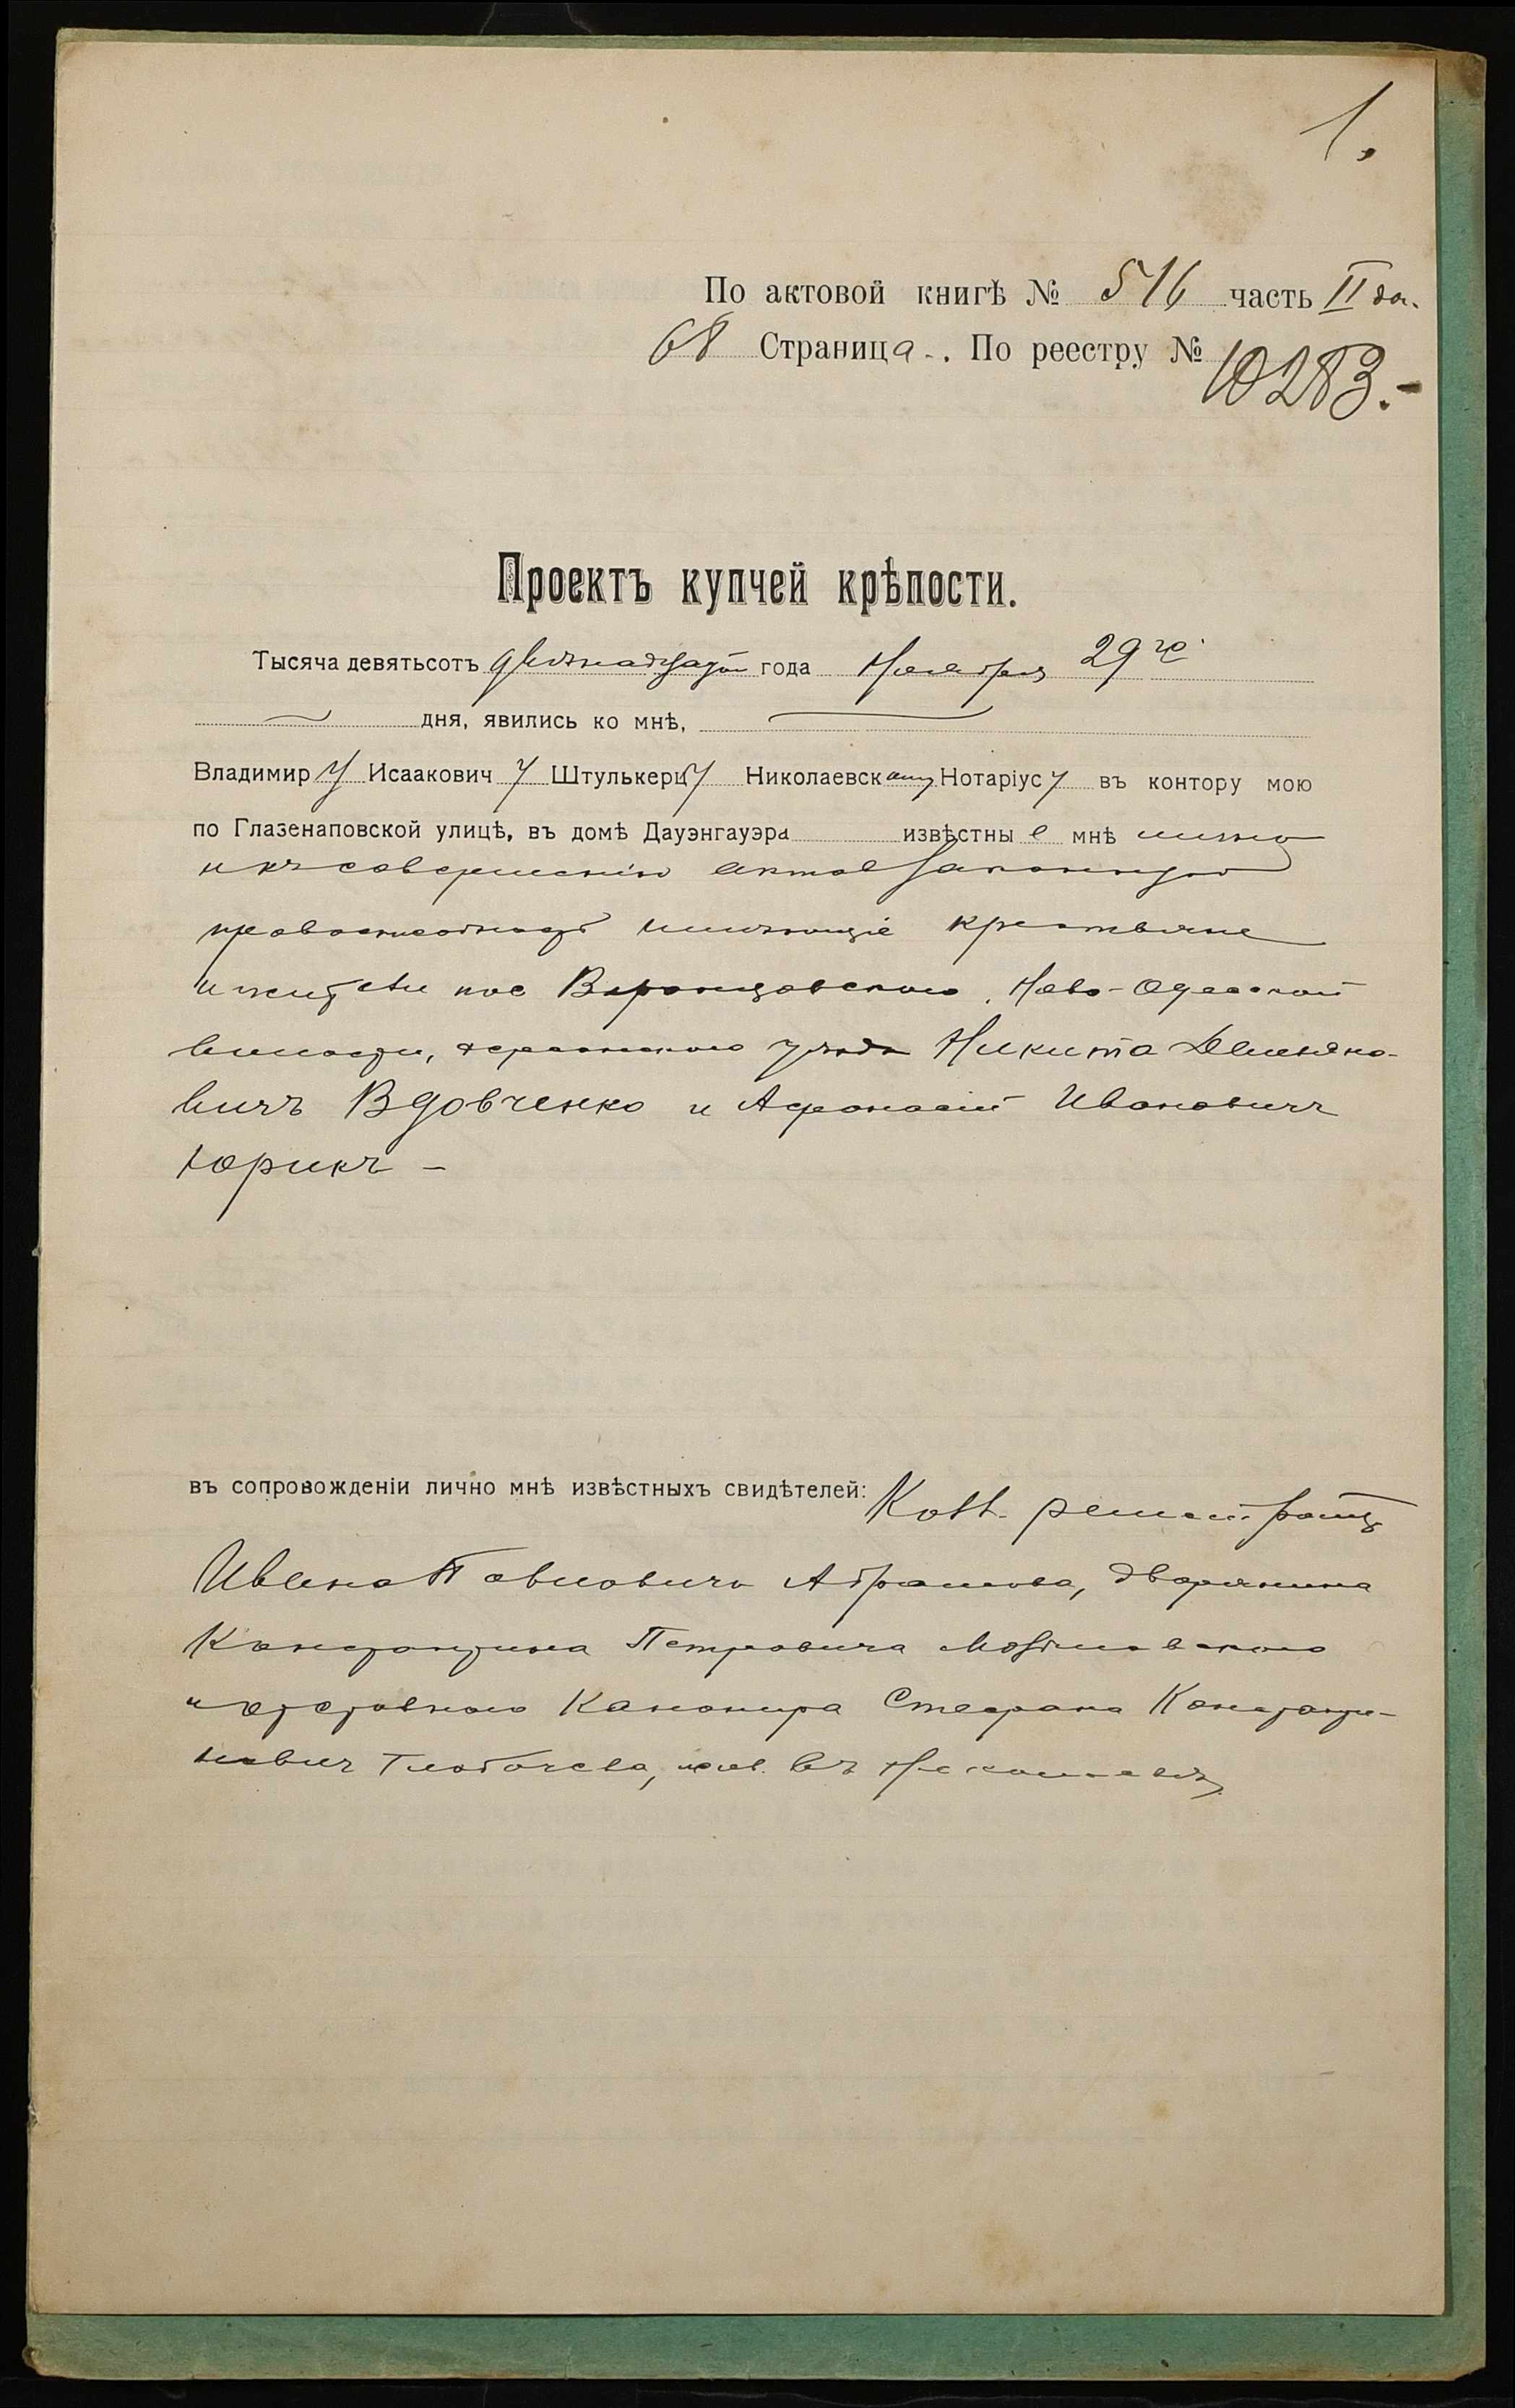 1.
По актовой книгѣ № 516 часть II
68 Страница. По реестру №
10283.-
Проектъ купчей крѣпости.
Тысяча девятьсотъ года Ноября 29го
дня, явились ко мнѣ,
Владимиру Исааковичу Штулькерцу Николаевскому Нотаріусу въ контору мою
по Глазенаповской улицѣ, въ домѣ Дауэнгауэра извѣстные мнѣ лично
и къ совершенію актов законную
правоспособность имѣющіе крестьяне
и жители пос Воронцовского, Ново-Одесской
волости, Херсонского уѣзда Никита
вичъ Вдовченко и Афанасій Ивановичъ
Юрикъ -
въ сопровожденіи лично мнѣ извѣстныхъ свидѣтелей: Колл.
Ивана Павловича Абрамова, дворянина
Константина Петровича
и отставного Канонира Стефана Константи-
нович жив. въ Николаевѣ